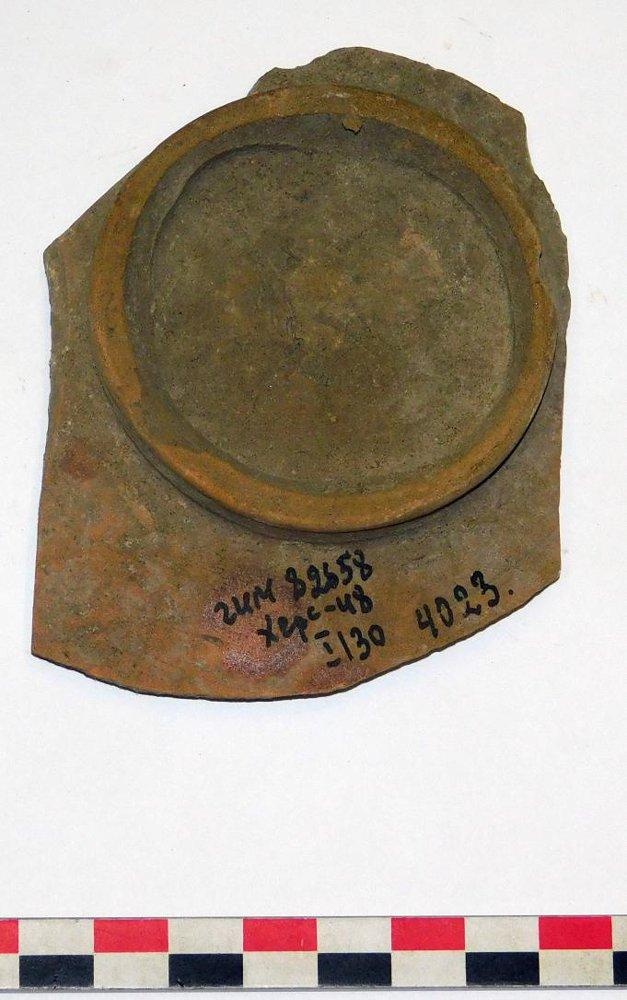 гим 82658
Херс-48
I/130 4023.